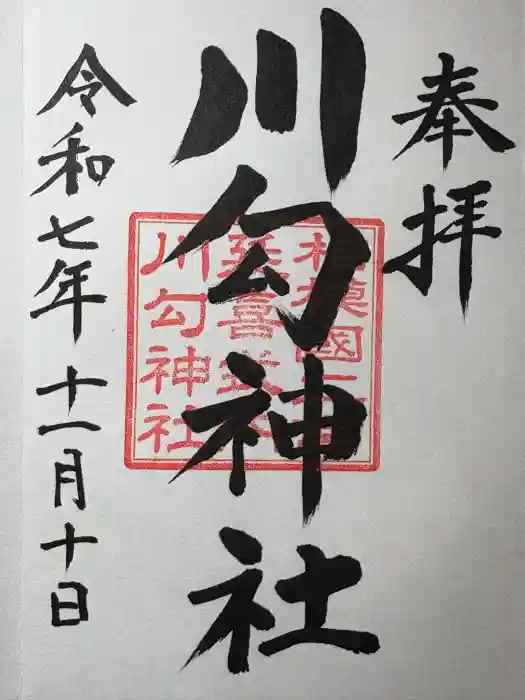 奉拝
川勾神社
相模國二宮
延喜式内
川勾神社
令和七年十一月十日